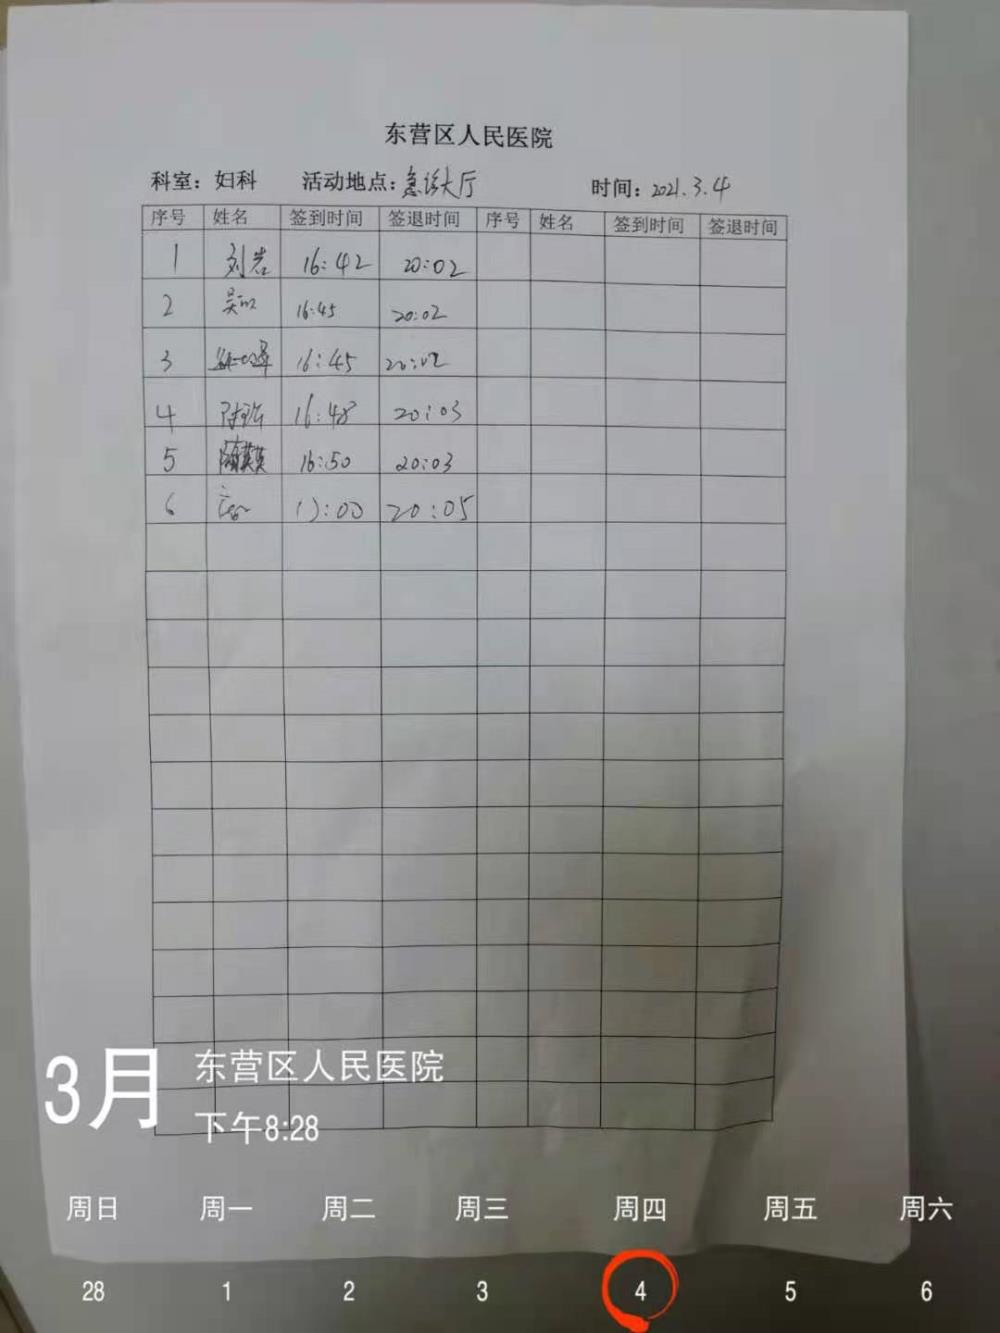 东营区人民医院
科室：妇科 活动地点：急诊大厅 时间：2021.3.4
序号 姓名 签到时间 签退时间 序号 姓名 签到时间 签退时间
1 刘岩 16:42 20:02
2 16:45 20:02
3 16:45 20:02
4 16:48 20:03
5 16:50 20:03
6 17:00 20:05
3月 东营区人民医院
下午8:28
周日 周一 周二 周三 周四 周五 周六
28 1 2 3 4 5 6